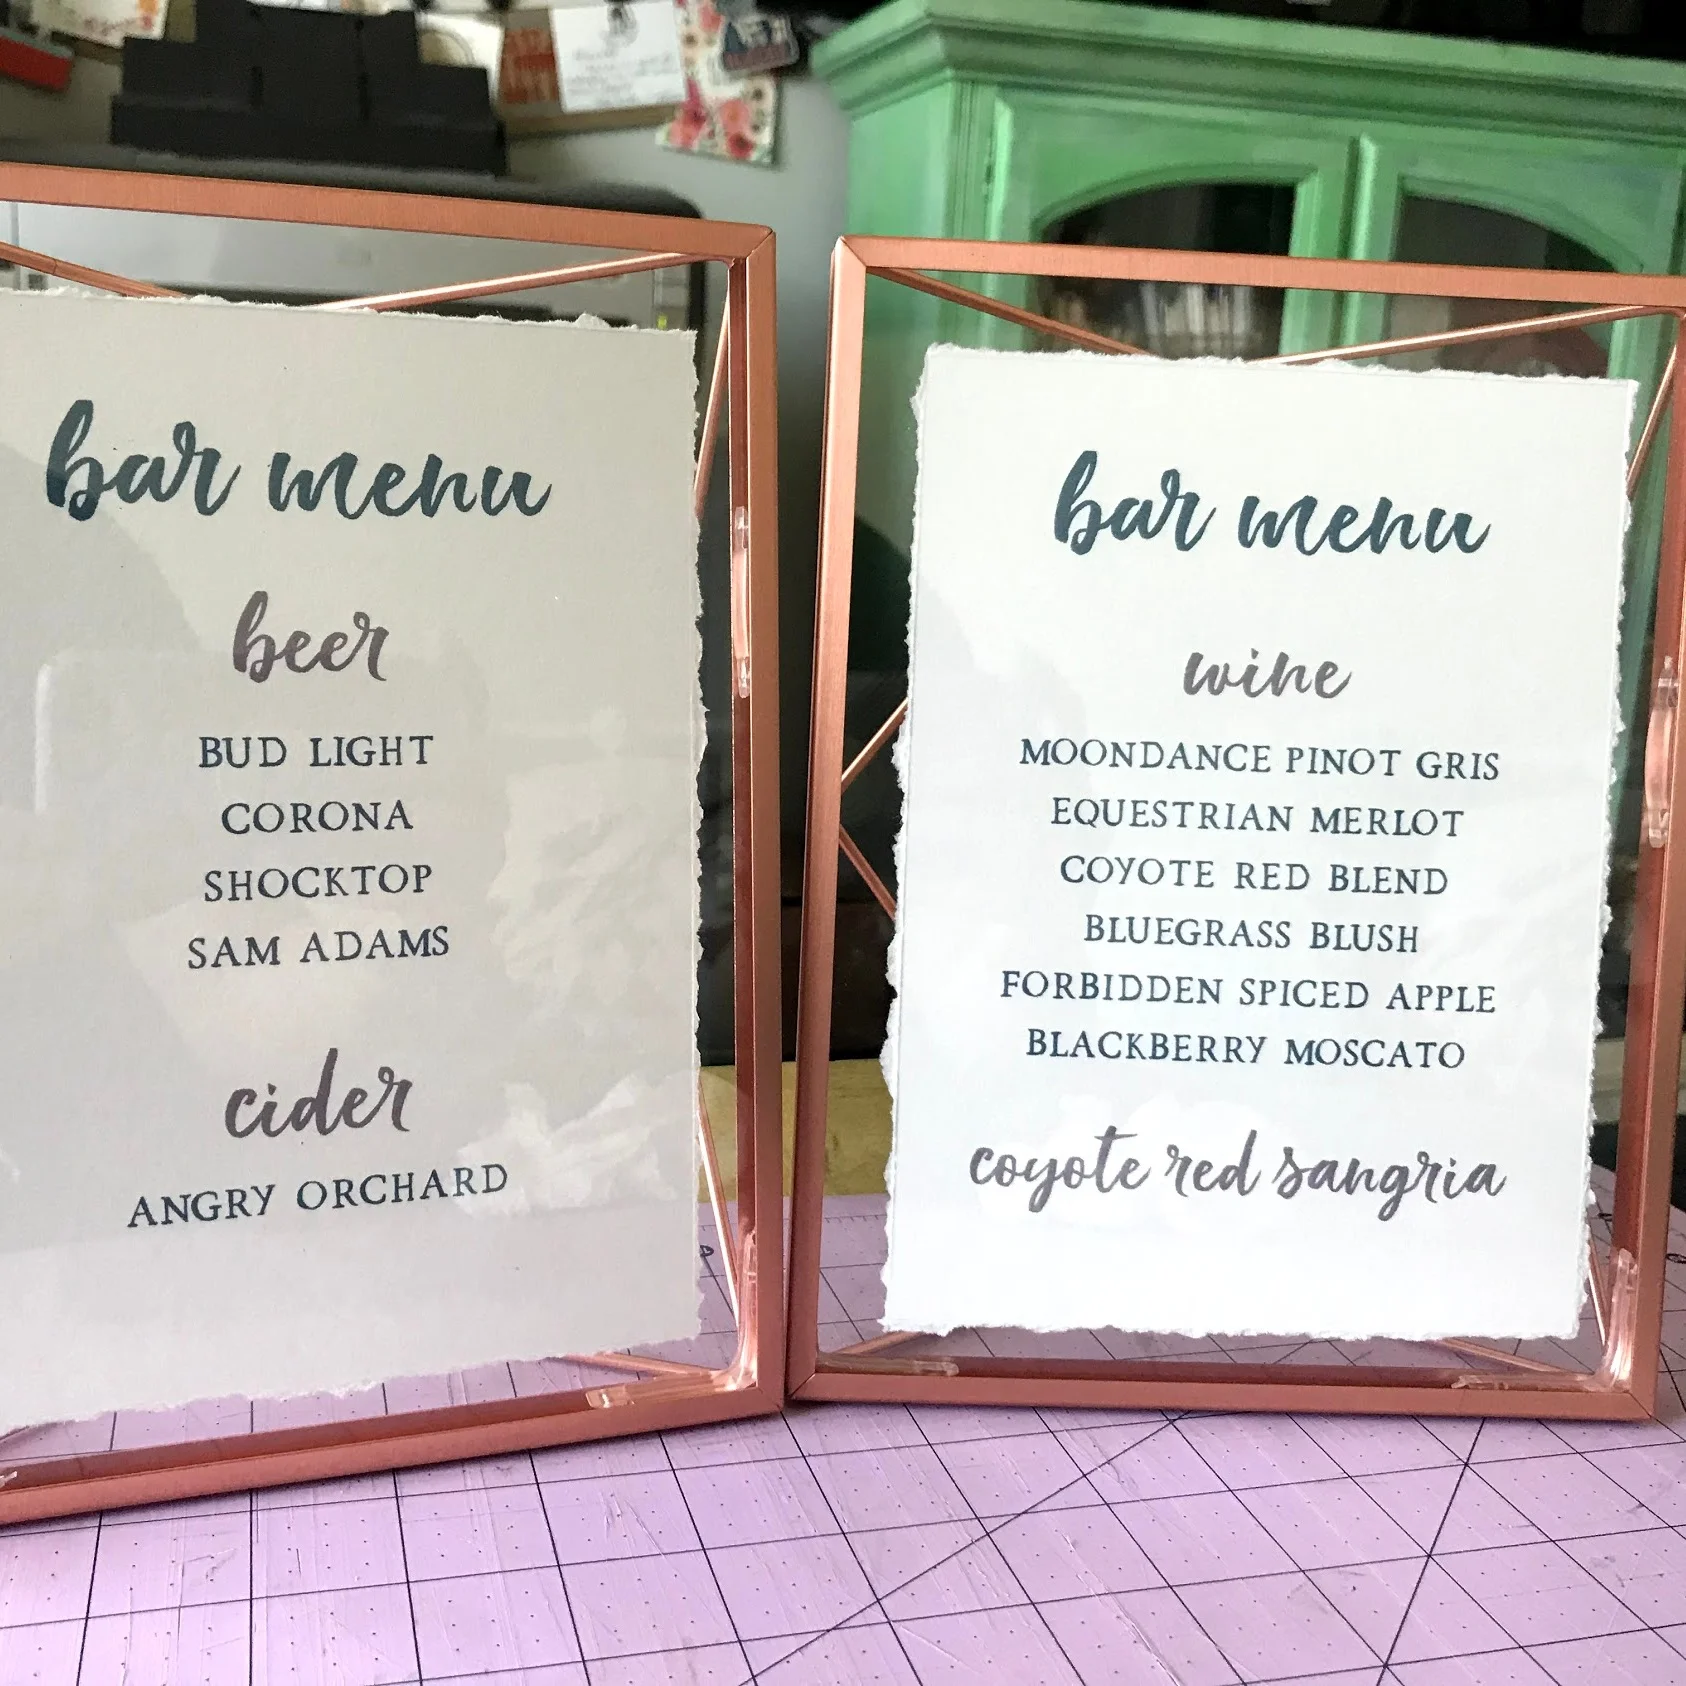 bar menu
beer
BUD LIGHT
CORONA
SHOCKTOP
SAM ADAMS
cider
ANGRY ORCHARD
bar menu
wine
MOONDANCE PINOT GRIS
EQUESTRIAN MERLOT
COYOTE RED BLEND
BLUEGRASS BLUSH
FORBIDDEN SPICED APPLE
BLACKBERRY MOSCATO
coyote red sangria